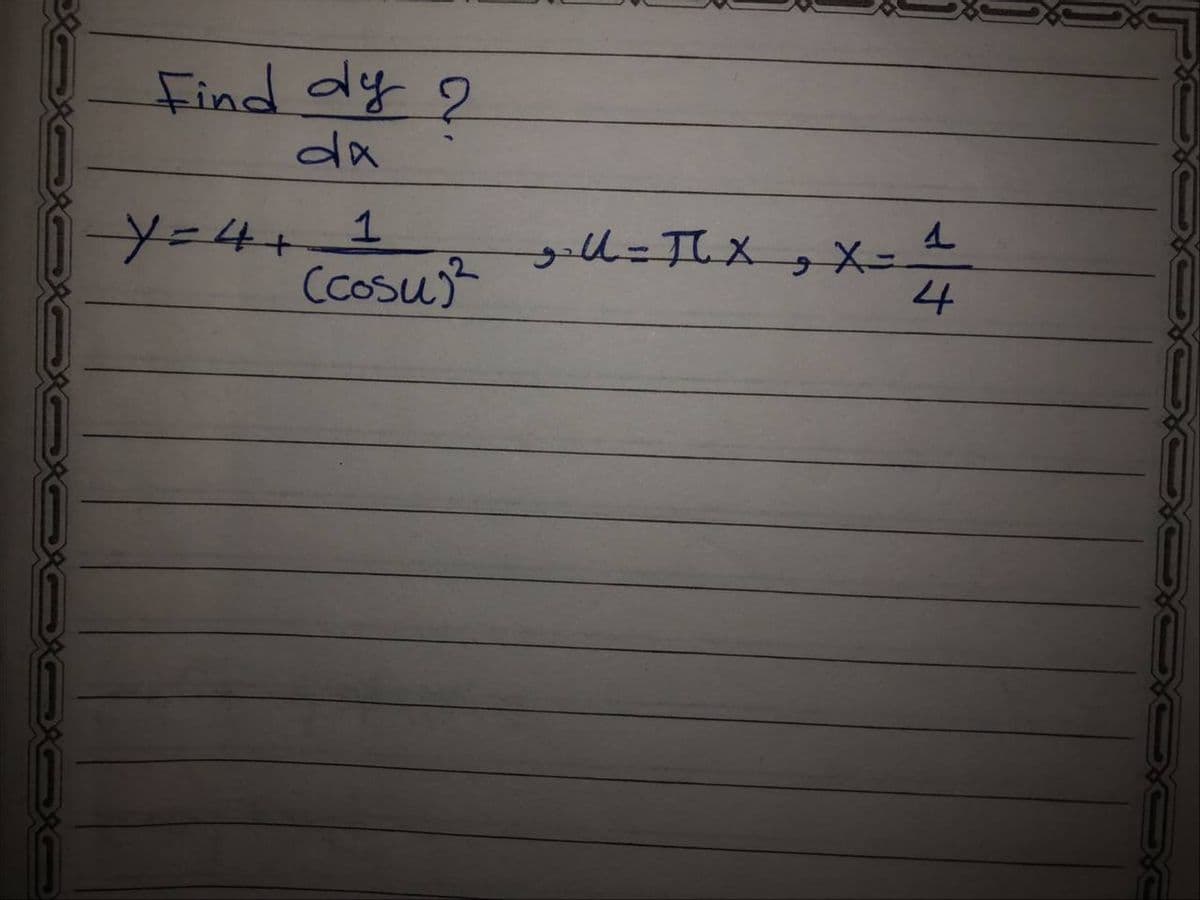 Find dy/dx ?
y = 4 + 1/(cosu)² , u = π x , x = 1/4